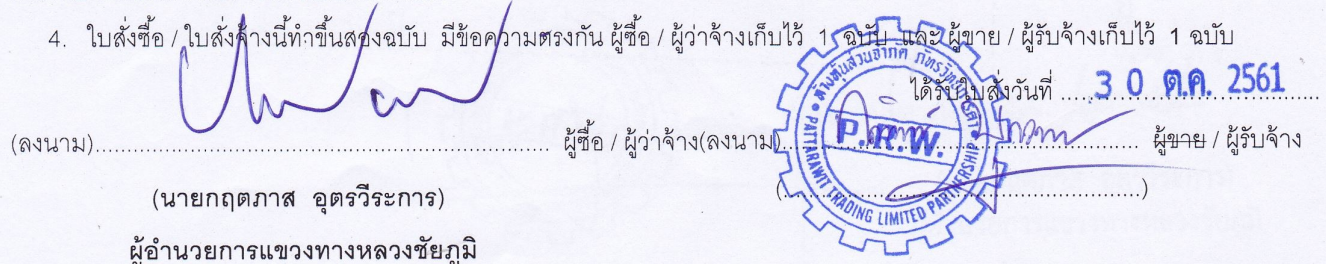 4. ใบสั่งซื้อ / ใบสั่งจ้างนี้ทำขึ้นสองฉบับ มีข้อความตรงกัน ผู้ซื้อ / ผู้ว่าจ้างเก็บไว้ 1 ฉบับ และ ผู้ขาย / ผู้รับจ้างเก็บไว้ 1 ฉบับ
ได้รับใบสั่งวันที่ ..... 3 0 ต.ค. 2561 .....
(ลงนาม)........................ ผู้ซื้อ / ผู้ว่าจ้าง(ลงนาม)........................ ผู้ขาย / ผู้รับจ้าง
(นายกฤตภาส อุตรวีระการ)
(........................)
ผู้อำนวยการแขวงทางหลวงชัยภูมิ
ห้างหุ้นส่วนจำกัด
P.R.W.
PATTARAWIT TRADING LIMITED PARTNERSHIP